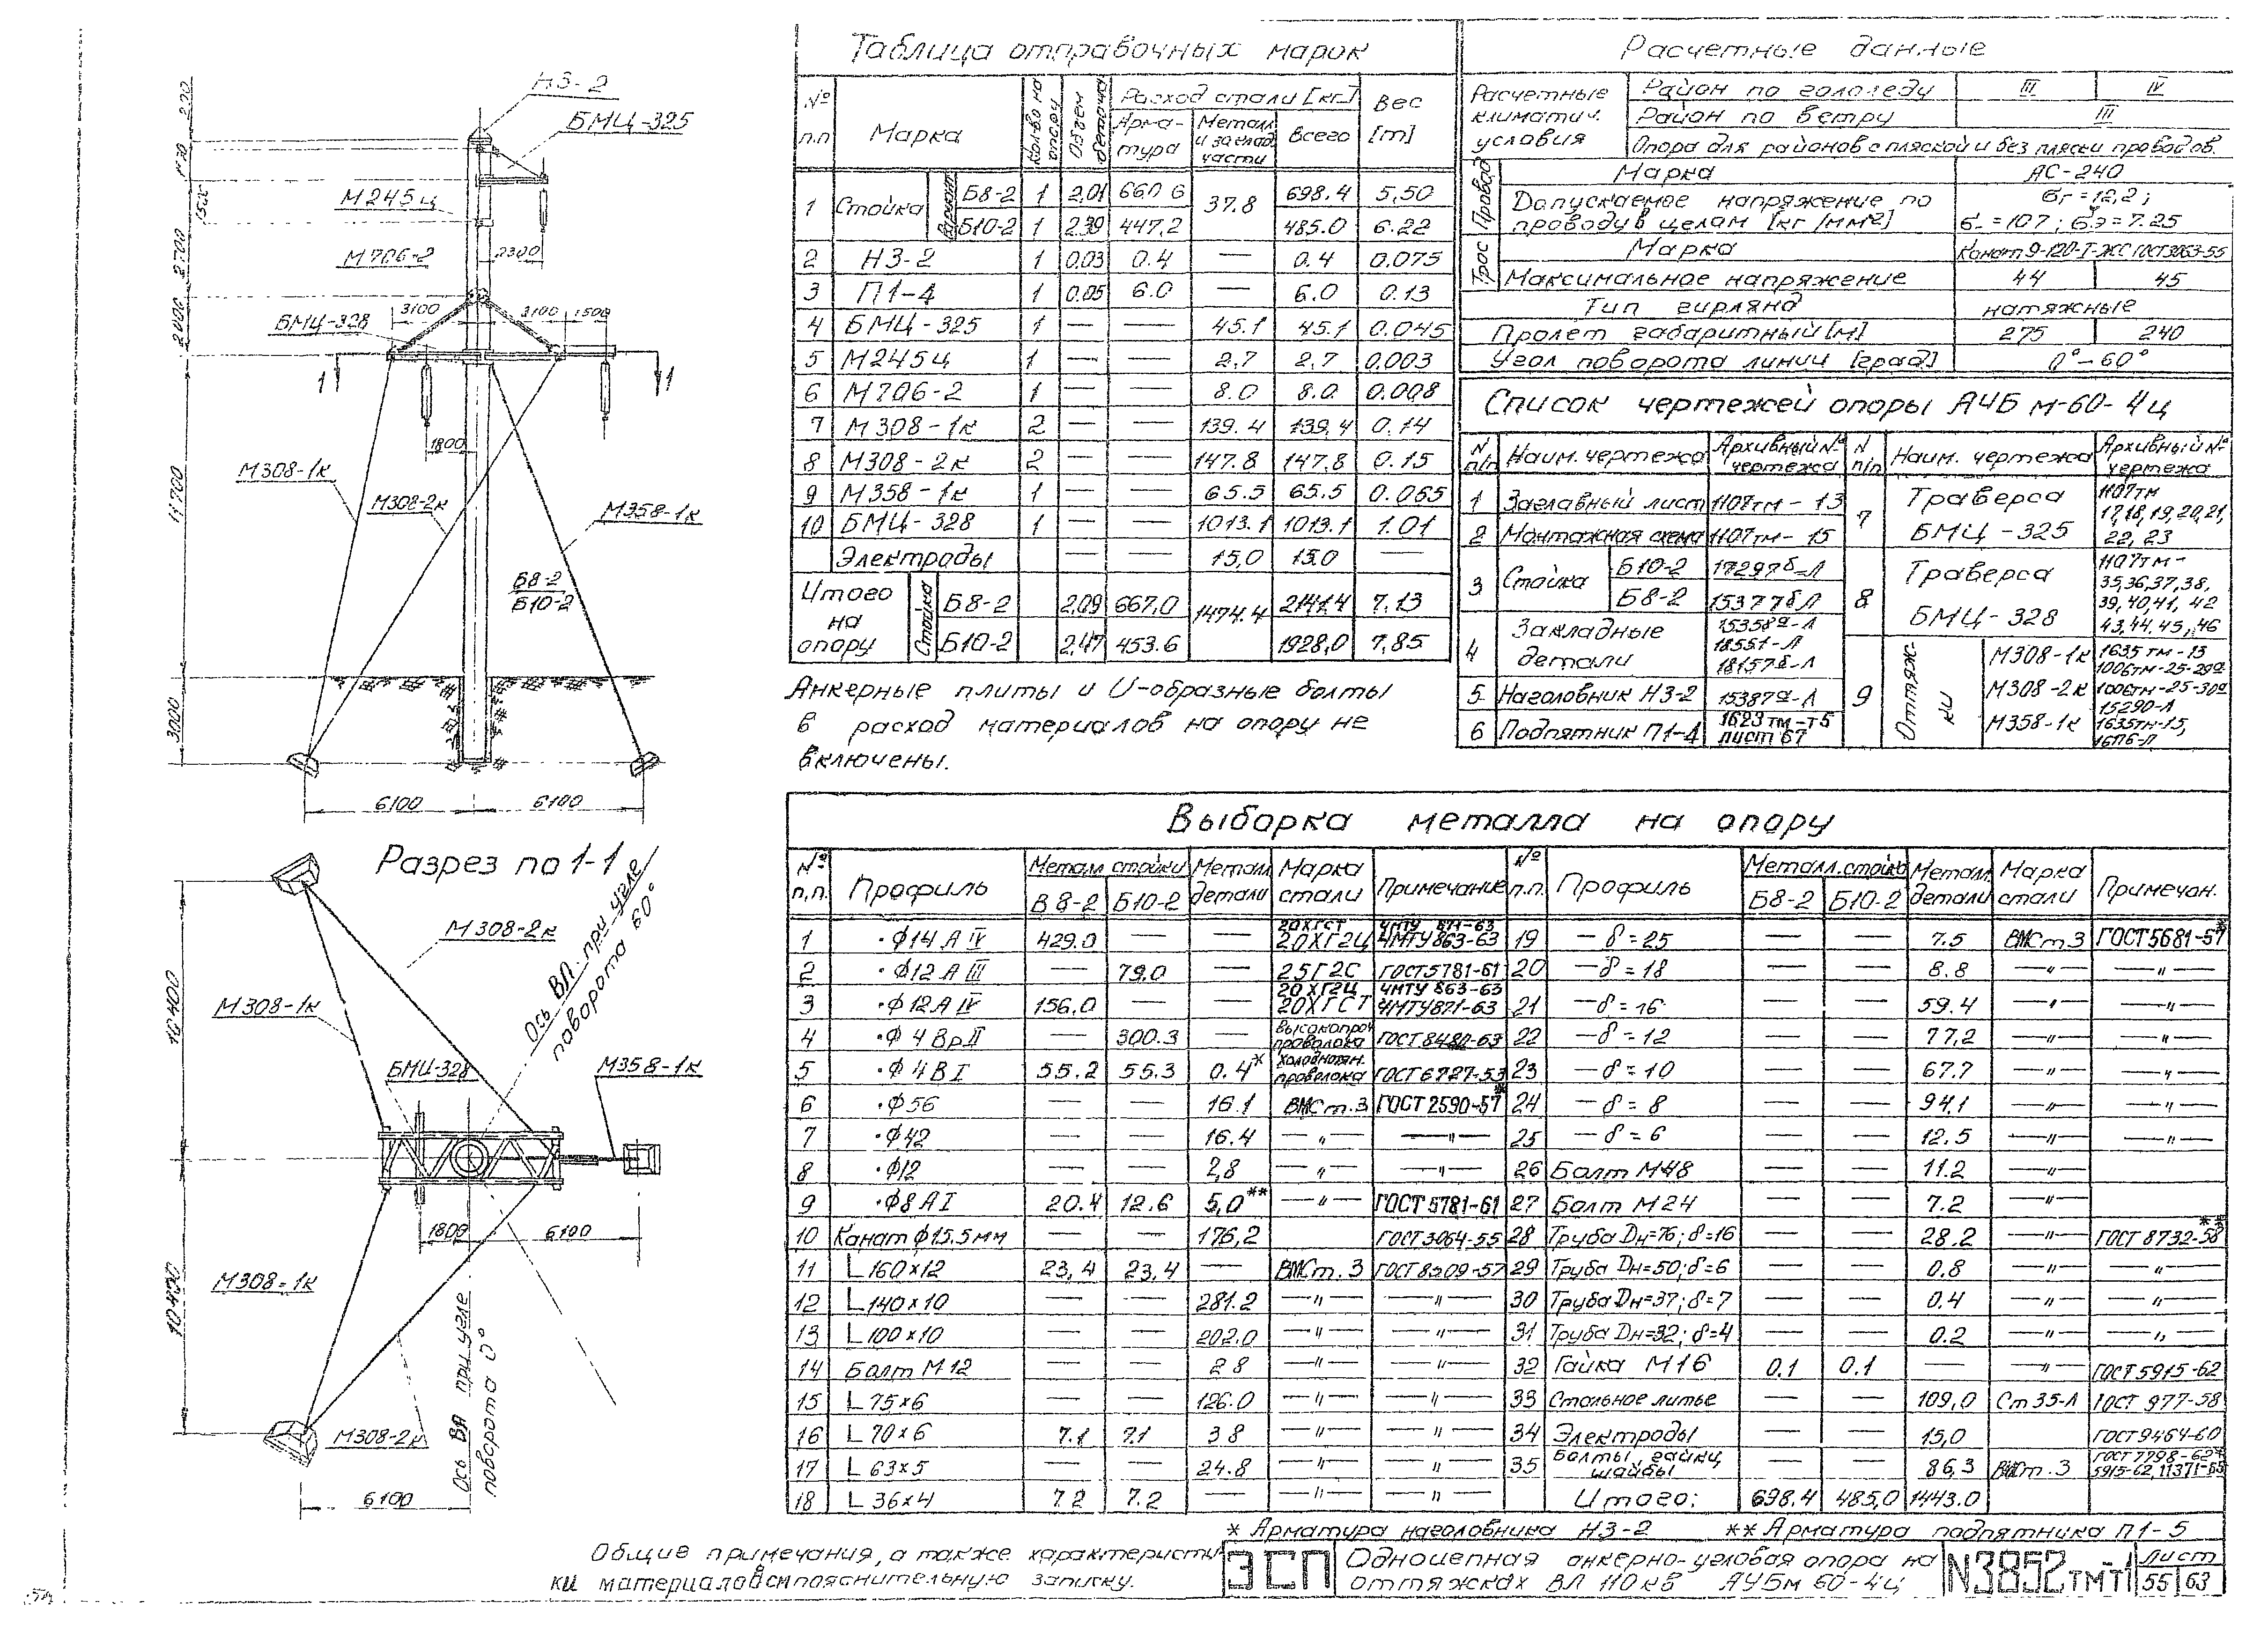 НЗ-2
БМЦ-325
М245ц
М706-2
2300
3100
3100
1500
БМЦ-328
1
1
1800
М308-1к
М308-2к
М358-1к
Б8-2
Б10-2
2700
2000
11700
3000
6100
6100
Разрез по 1-1
М308-2к
М308-1к
БМЦ-328
М358-1к
Ось ВЛ при угле
поворота 60°
10400
10400
1800
6100
М308-1к
М308-2к
Ось ВЛ при угле
поворота 0°
6100
Таблица отправочных марок
№ п.п | Марка | Кол-во на опору | Объем бетона | Расход стали [кг] | Вес [т]
Арматура | Металл и заклад. части | Всего
1 Стойка Б8-2 1 2,01 660.6 37.8 698.4 5,50
Б10-2 1 2.39 447,2 485.0 6.22
2 НЗ-2 1 0.03 0.4 — 0.4 0.075
3 П1-4 1 0.05 6.0 — 6.0 0.13
4 БМЦ-325 1 — — 45.1 45.1 0.045
5 М245ц 1 — — 2,7 2,7 0.003
6 М706-2 1 — — 8.0 8.0 0.008
7 М308-1к 2 — — 139.4 139.4 0.14
8 М308-2к 2 — — 147.8 147.8 0.15
9 М358-1к 1 — — 65.5 65.5 0.065
10 БМЦ-328 1 — — 1013.1 1013.1 1.01
Электроды — — 15,0 15.0 —
Итого на опору Стойка Б8-2 2,09 667,0 1474.4 2141.4 7.13
Б10-2 2,47 453.6 1928,0 7,85
Анкерные плиты и U-образные болты
в расход материалов на опору не
включены.
Расчетные данные
Расчетные климатич. условия | Район по гололеду | III | IV
Район по ветру | III
Опора для районов с пляской и без пляски проводов.
Провод | Марка | АС-240
Допускаемое напряжение по
проводу в целом [кг/мм2]
Трос | Марка | Канат 9-120-Т-ЖС ГОСТ3063-55
Максимальное напряжение 44 45
Тип гирлянд натяжные
Пролет габаритный [м] 275 240
Угол поворота линии [град] 0°-60°
Список чертежей опоры АУБм-60-4ц
N п/п | Наим. чертежа | Архивный № чертежа | N п/п | Наим. чертежа | Архивный № чертежа
1 Заглавный лист 1107тм-13
2 Монтажная схема 1107тм-15
3 Стойка Б10-2 17297б-Л
Б8-2 15377б-Л
4 Закладные детали 15358а-Л
18551-Л
18157б-Л
5 Наголовник НЗ-2 15387а-Л
6 Подпятник П1-4 1623тм-т5 лист 67
7 Траверса БМЦ-325 1107тм
17,18,19,20,21,
22,23
8 Траверса БМЦ-328 1107тм-
35,36,37,38,
39,40,41,42
43,44,45,46
9 Оттяжки М308-1к М308-2к М358-1к
1635тм-13
1006тм-25-29а
1006тм-25-30а
15290-Л
1635тм-15,
Выборка металла на опору
№ п.п. | Профиль | Металл стойки | Металл детали | Марка стали | Примечание
В8-2 | Б10-2
1 ·Ф14АIV 429.0 — — 20ХГСТ 20ХГ2Ц ЧМТУ 871-63 ЧМТУ863-63
2 ·Ф12АIII — 79.0 — 25Г2С ГОСТ5781-61
3 ·Ф12АIV 156,0 — — 20ХГ2Ц 20ХГСТ ЧМТУ 863-63 ЧМТУ871-63
4 ·Ф4ВрII — 300.3 — высокопроч проволока ГОСТ8480-63
5 ·Ф4ВI 55.2 55.3 0.4* холоднотян. проволока ГОСТ6727-53
6 ·Ф56 — — 16.1 ВМСт.3 ГОСТ2590-57*
7 ·Ф42 — — 16.4 —"— —"—
8 ·Ф12 — — 2,8 —"— —"—
9 ·Ф8АI 20.4 12.6 5,0** —"— ГОСТ5781-61
10 Канат ф15.5мм — — 176,2 ГОСТ3064-55
11 L160x12 23,4 23,4 — ВМСт.3 ГОСТ8509-57
12 L140x10 — — 281.2 —"— —"—
13 L100x10 — — 202.0 —"— —"—
14 Болт М12 — — 2 8 —"— —"—
15 L75x6 — — 126.0 —"— —"—
16 L70x6 7.1 7.1 3 8 —"— —"—
17 L63x5 — — 24.8 —"— "
18 L36x4 7.2 7.2 — —"— —"—
№ п.п. | Профиль | Металл.стойка | Металл. детали | Марка стали | Примечан.
Б8-2 | Б10-2
19 —δ=25 — — 7.5 ВМСт.3 ГОСТ5681-57*
20 —δ=18 — — 8.8 —"— —"—
21 —δ=16 — — 59.4 —"— —"—
22 —δ=12 — — 77,2 —"— —"—
23 —δ=10 — — 67.7 —"— —"—
24 —δ=8 — — 94,1 —"— —"—
25 —δ=6 — — 12.5 —"— —"—
26 Болт М48 — — 11.2 —"—
27 Болт М24 — — 7.2 —"—
28 Труба Dн=76; δ=16 — — 28.2 —"— ГОСТ8732-58**
29 Труба Dн=50; δ=6 — — 0.8 —"— —"—
30 Труба Dн=37; δ=7 — — 0.4 —"— —"—
31 Труба Dн=32; δ=4 — — 0.2 —"— —"—
32 Гайка М16 0.1 0.1 — —"— ГОСТ5915-62
33 Стальное литье — — 109,0 Ст35-Л ГОСТ 977-58
34 Электроды 15,0 ГОСТ9464-60
35 Болты, гайки, шайбы — — 86,3 ВМСт.3 ГОСТ7798-62*
Итого: 698.4 485,0 1443.0
* Арматура наголовника НЗ-2 ** Арматура подпятника П1-5
Общие примечания, а также характеристи
ки материалов см пояснительную записку.
ЭСП
Одноцепная анкерно-угловая опора на
оттяжках ВЛ 110кв АУБм 60-4ц
N3852тмТ1
Лист
55 63